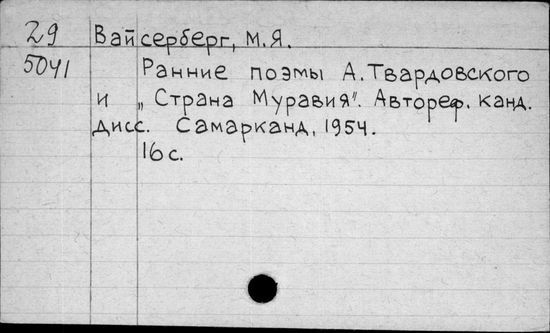 29 Вайсерберг, М.Я.
5041 Ранние поэмы А.Твардовского
и „Страна Муравия". Автореф. канд.
дисс. Самарканд, 1954.
16 с.